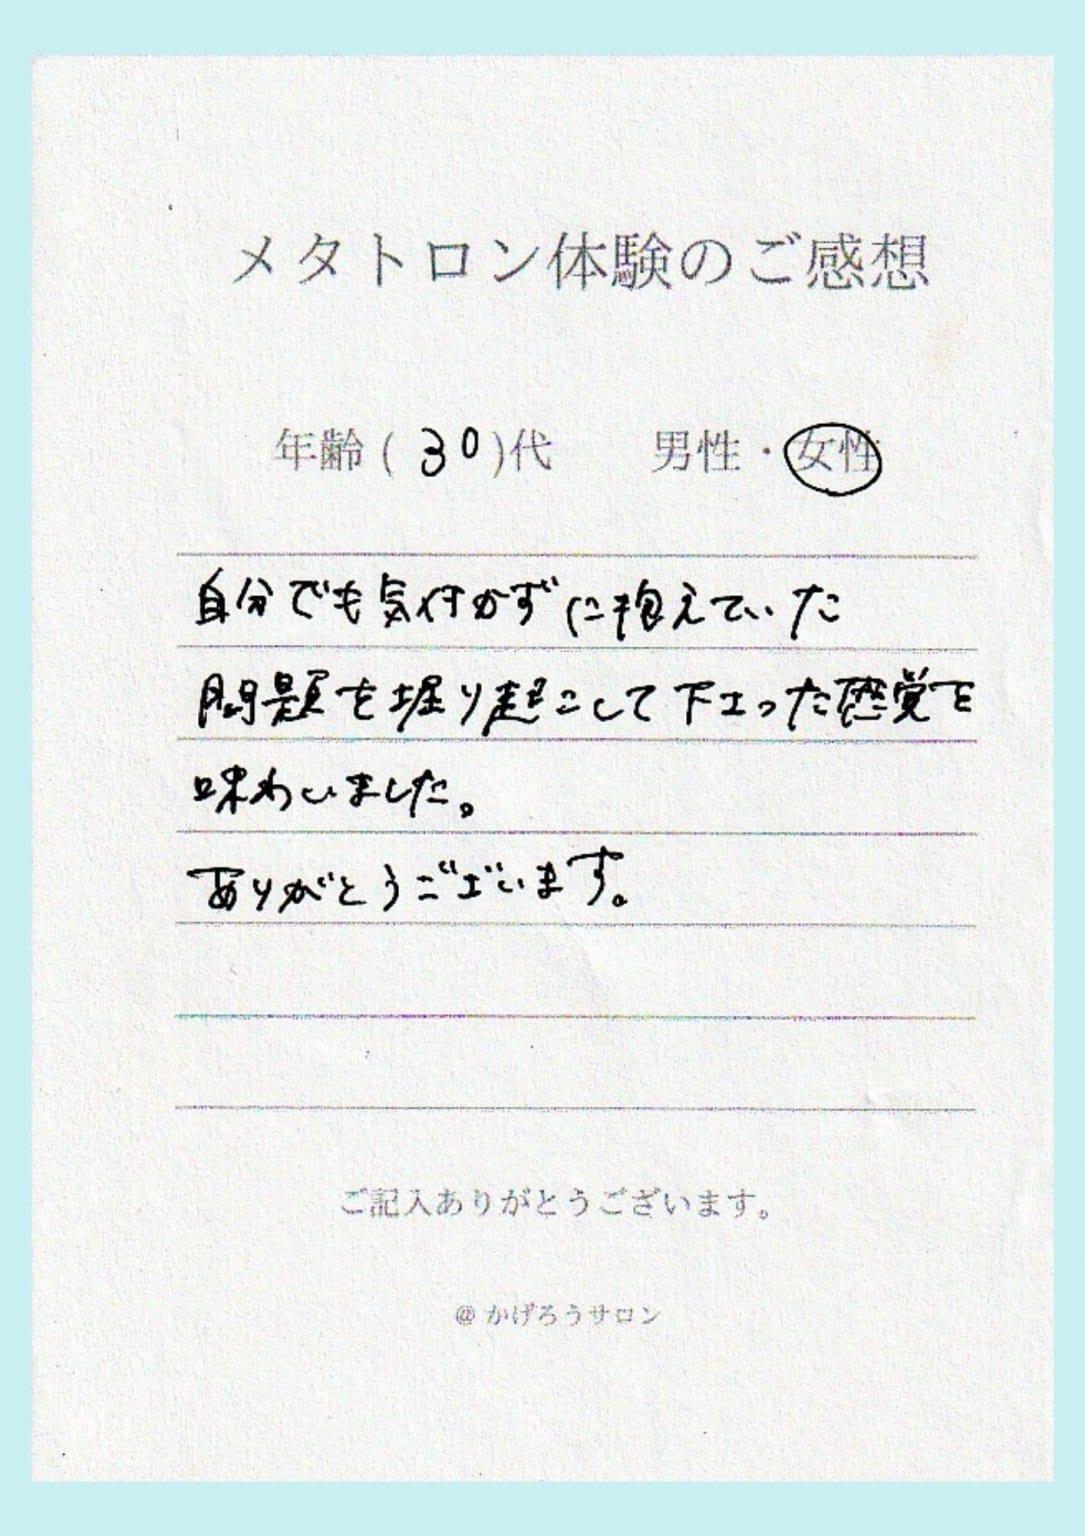 メタトロン体験のご感想
年齢(30)代 男性・女性
自分でも気付かずに抱えていた
問題を掘り起こして下さった感覚を
味わいました。
ありがとうございます。
ご記入ありがとうございます。
@かげろうサロン